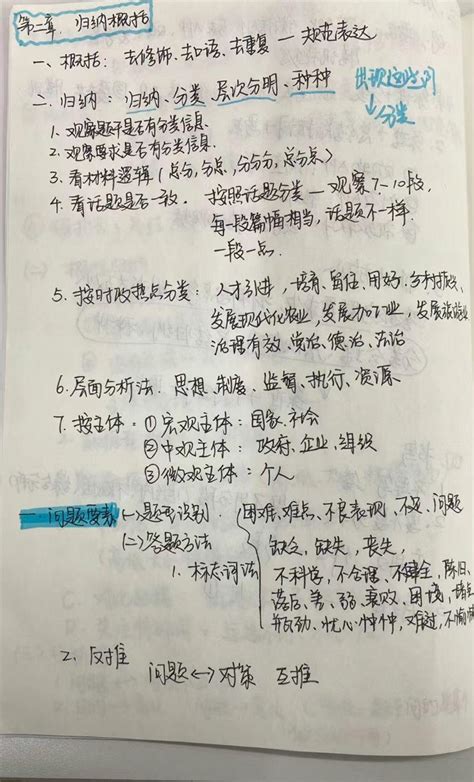 第二章、归纳概括
一、概括：去修饰、去口语、去重复 — 规范表达
二、归纳：归纳、分类、层次分明、种种
出现这些词
↓分类
1. 观察题干是否有分类信息.
2. 观察要求是否有分类信息.
3. 看材料逻辑（总分，分总，分分分，总分总）
4. 看话题是否一致. 按照话题分类 — 观察7-10段,
每一段篇幅相当，话题不一样.
一段一点.
5. 按时政热点分类： 人才引进，培育、留住、用好，乡村振兴
发展现代化农业，发展加工业，发展旅游业
治理有效、自治、德治、法治
6. 层面分析法. 思想、制度、监督、执行、资源
7. 按主体：① 宏观主体：国家、社会
② 中观主体： 政府、企业、组织
③ 微观主体：个人
一 问题要素 (一) 题型识别.
困难、难点、不良表现、不足、问题
(二) 答题方法
缺乏，缺失，丧失，
1. 标志词法
不科学，不合理、不健全，陈旧、
落后、差、弱、衰败、困境，
忧心忡忡，难过，
2. 反推
问题 <-> 对策 互推